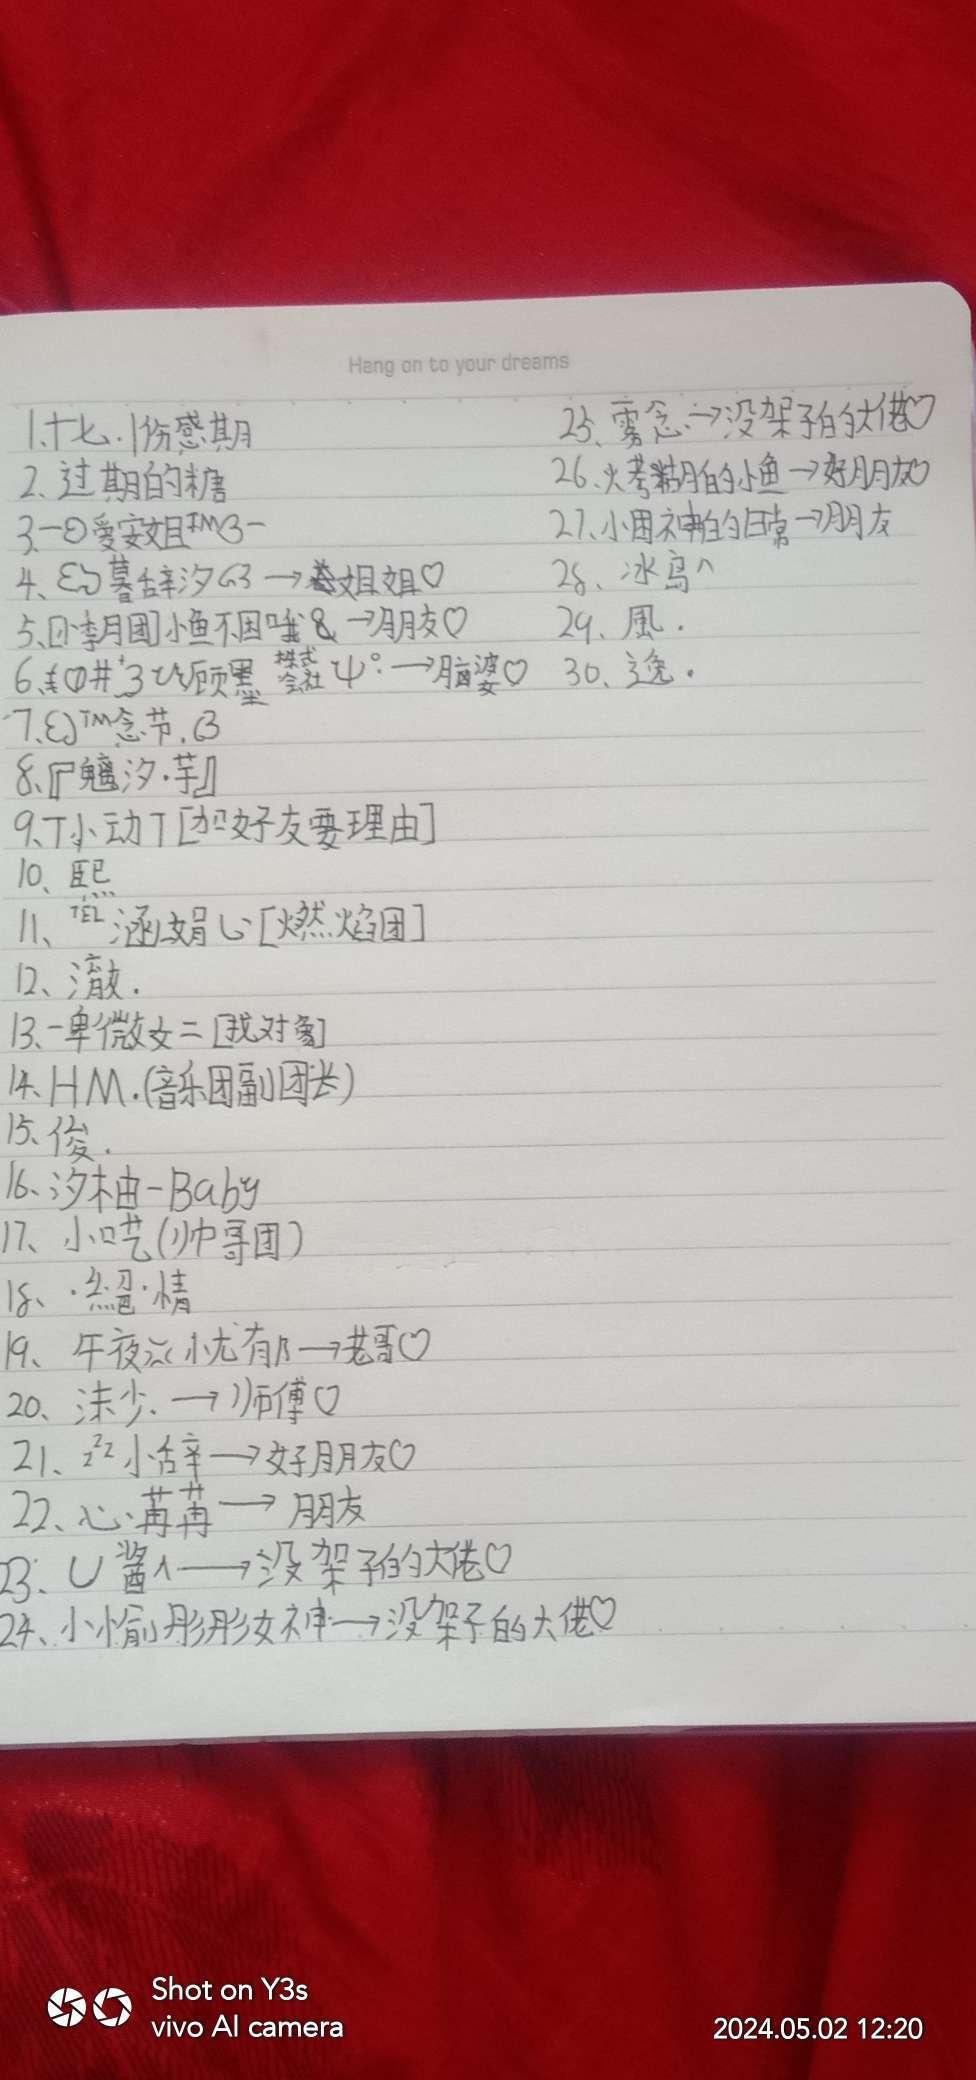 Hang on to your dreams
1、十七.|伤感期
2、过期的糖
3、一⊙愛安姐TM3一
4、暮辞汐 → 姐姐♡
5、[小季月团]小鱼不困哦& →朋友♡
6、顾墨 株式会社 ψ°. →脑婆♡
7、TM念节.
8、『魑汐·芋』
9、T小动T[加好友要理由]
10、熙
11、TEL涵娟心[燃焰团]
12、澈.
13、一卑微女二[找对象]
14、HM.(音乐团副团长)
15、俊.
16、汐柚-Baby
17、小呓(帅哥团)
18、·絕·情
19、午夜 小尤 →老哥♡
20、沫少. →师傅♡
21、zzz小辞→好朋友♡
22、心·苒苒→朋友
23、U酱^→没架子的大佬♡
24、小愉彤彤女神→没架子的大佬♡
25、雾念.→没架子的大佬♡
26、火考糊的小鱼→好朋友♡
27、小困神的日常→朋友
28、冰鸟^
29、風.
30、逸.
Shot on Y3s
vivo AI camera
2024.05.02 12:20